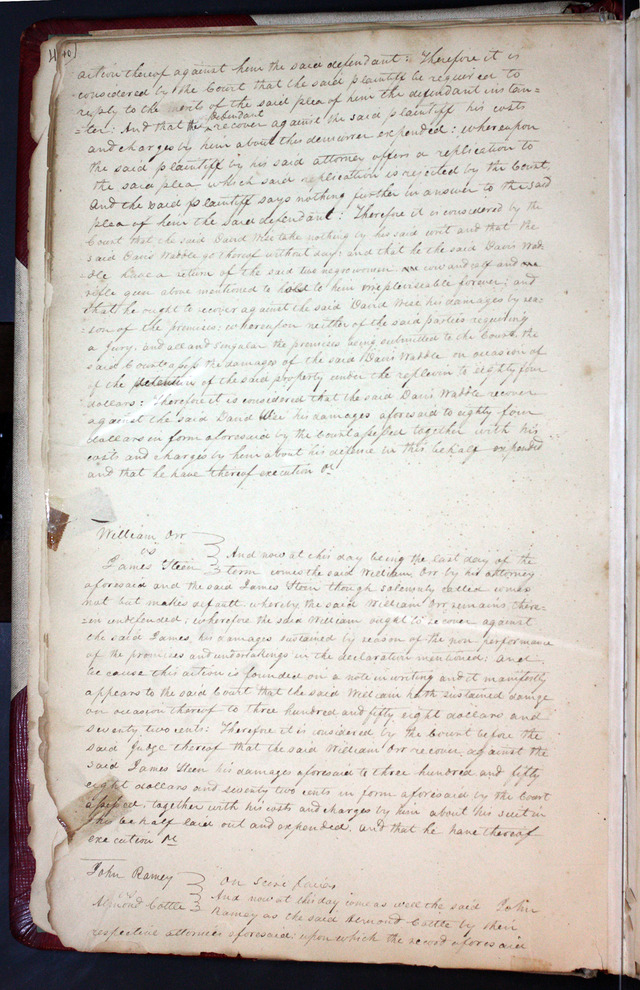 action thereof against him the said defendant: Therefore it is
considered by the Court that the said plaintiff be required to
reply to the merit of the said plea of him the defendant instan-
=ter: And that the Defendant recover against the said plaintiff his costs
and charges by him about this demurrer expended: whereupon
the said plaintiff by his said attorney offers a replication to
the said plea which said replication is rejected by the Court,
and the said plaintiff says nothing further in answer to the said
plea of him the said defendant: Therefore it is considered by the
Court that the said David Wee take nothing by his said writ and that the
said Davis Waddle go thereof without day; and that he the said Davis Wad-
=dle have a return of the said two negro women one cow and calf and one
rifle gun above mentioned to hold to him irrepleviseable forever; and
that he ought to recover against the said David Wee his damages by rea-
=son of the premises: whereupon neither of the said parties requiring
a jury, and all and singular the premises being submitted to the Court, the
said Court assess the damages of the said Davis Waddle on occasion of
of the detention of the said property under the replevin to eighty four
dollars: Therefore it is considered that the said Davis Waddle recover
against the said David Wee his damages aforesaid to eighty four
dollars in form aforesaid by the Court assessed together with his
costs and charges by him about his defence in this behalf expended
and that he have thereof execution &c
William Orr
vs
James Steen
And now at this day being the last day of the
term comes the said William Orr by his attorney
aforesaid and the said James Steen though solemnly called comes
not but makes default whereby the said William Orr remains there-
=in undefended; wherefore the said William ought to recover against
the said James, his damages sustained by reason of the non performance
of the promises and undertakings in the declaration mentioned; and
because this action is founded on a note in writing and it manifestly
appears to the said Court that the said William hath sustained damage
on occasion thereof to three hundred and fifty eight dollars and
seventy two cents: Therefore it is considered by the Court before the
said Judge thereof that the said William Orr recover against the
said James Steen his damages aforesaid to three hundred and fifty
eight dollars and seventy two cents in form aforesaid by the Court
assessed, together with his costs and charges by him about his suit in
this behalf laid out and expended, and that he have thereof
execution &c
John Ramey
Almond Cottle
On Scire facias
And now at this day come as well the said John
Ramey as the said Almond Cottle by their
respective attornies aforesaid: upon which the record aforesaid